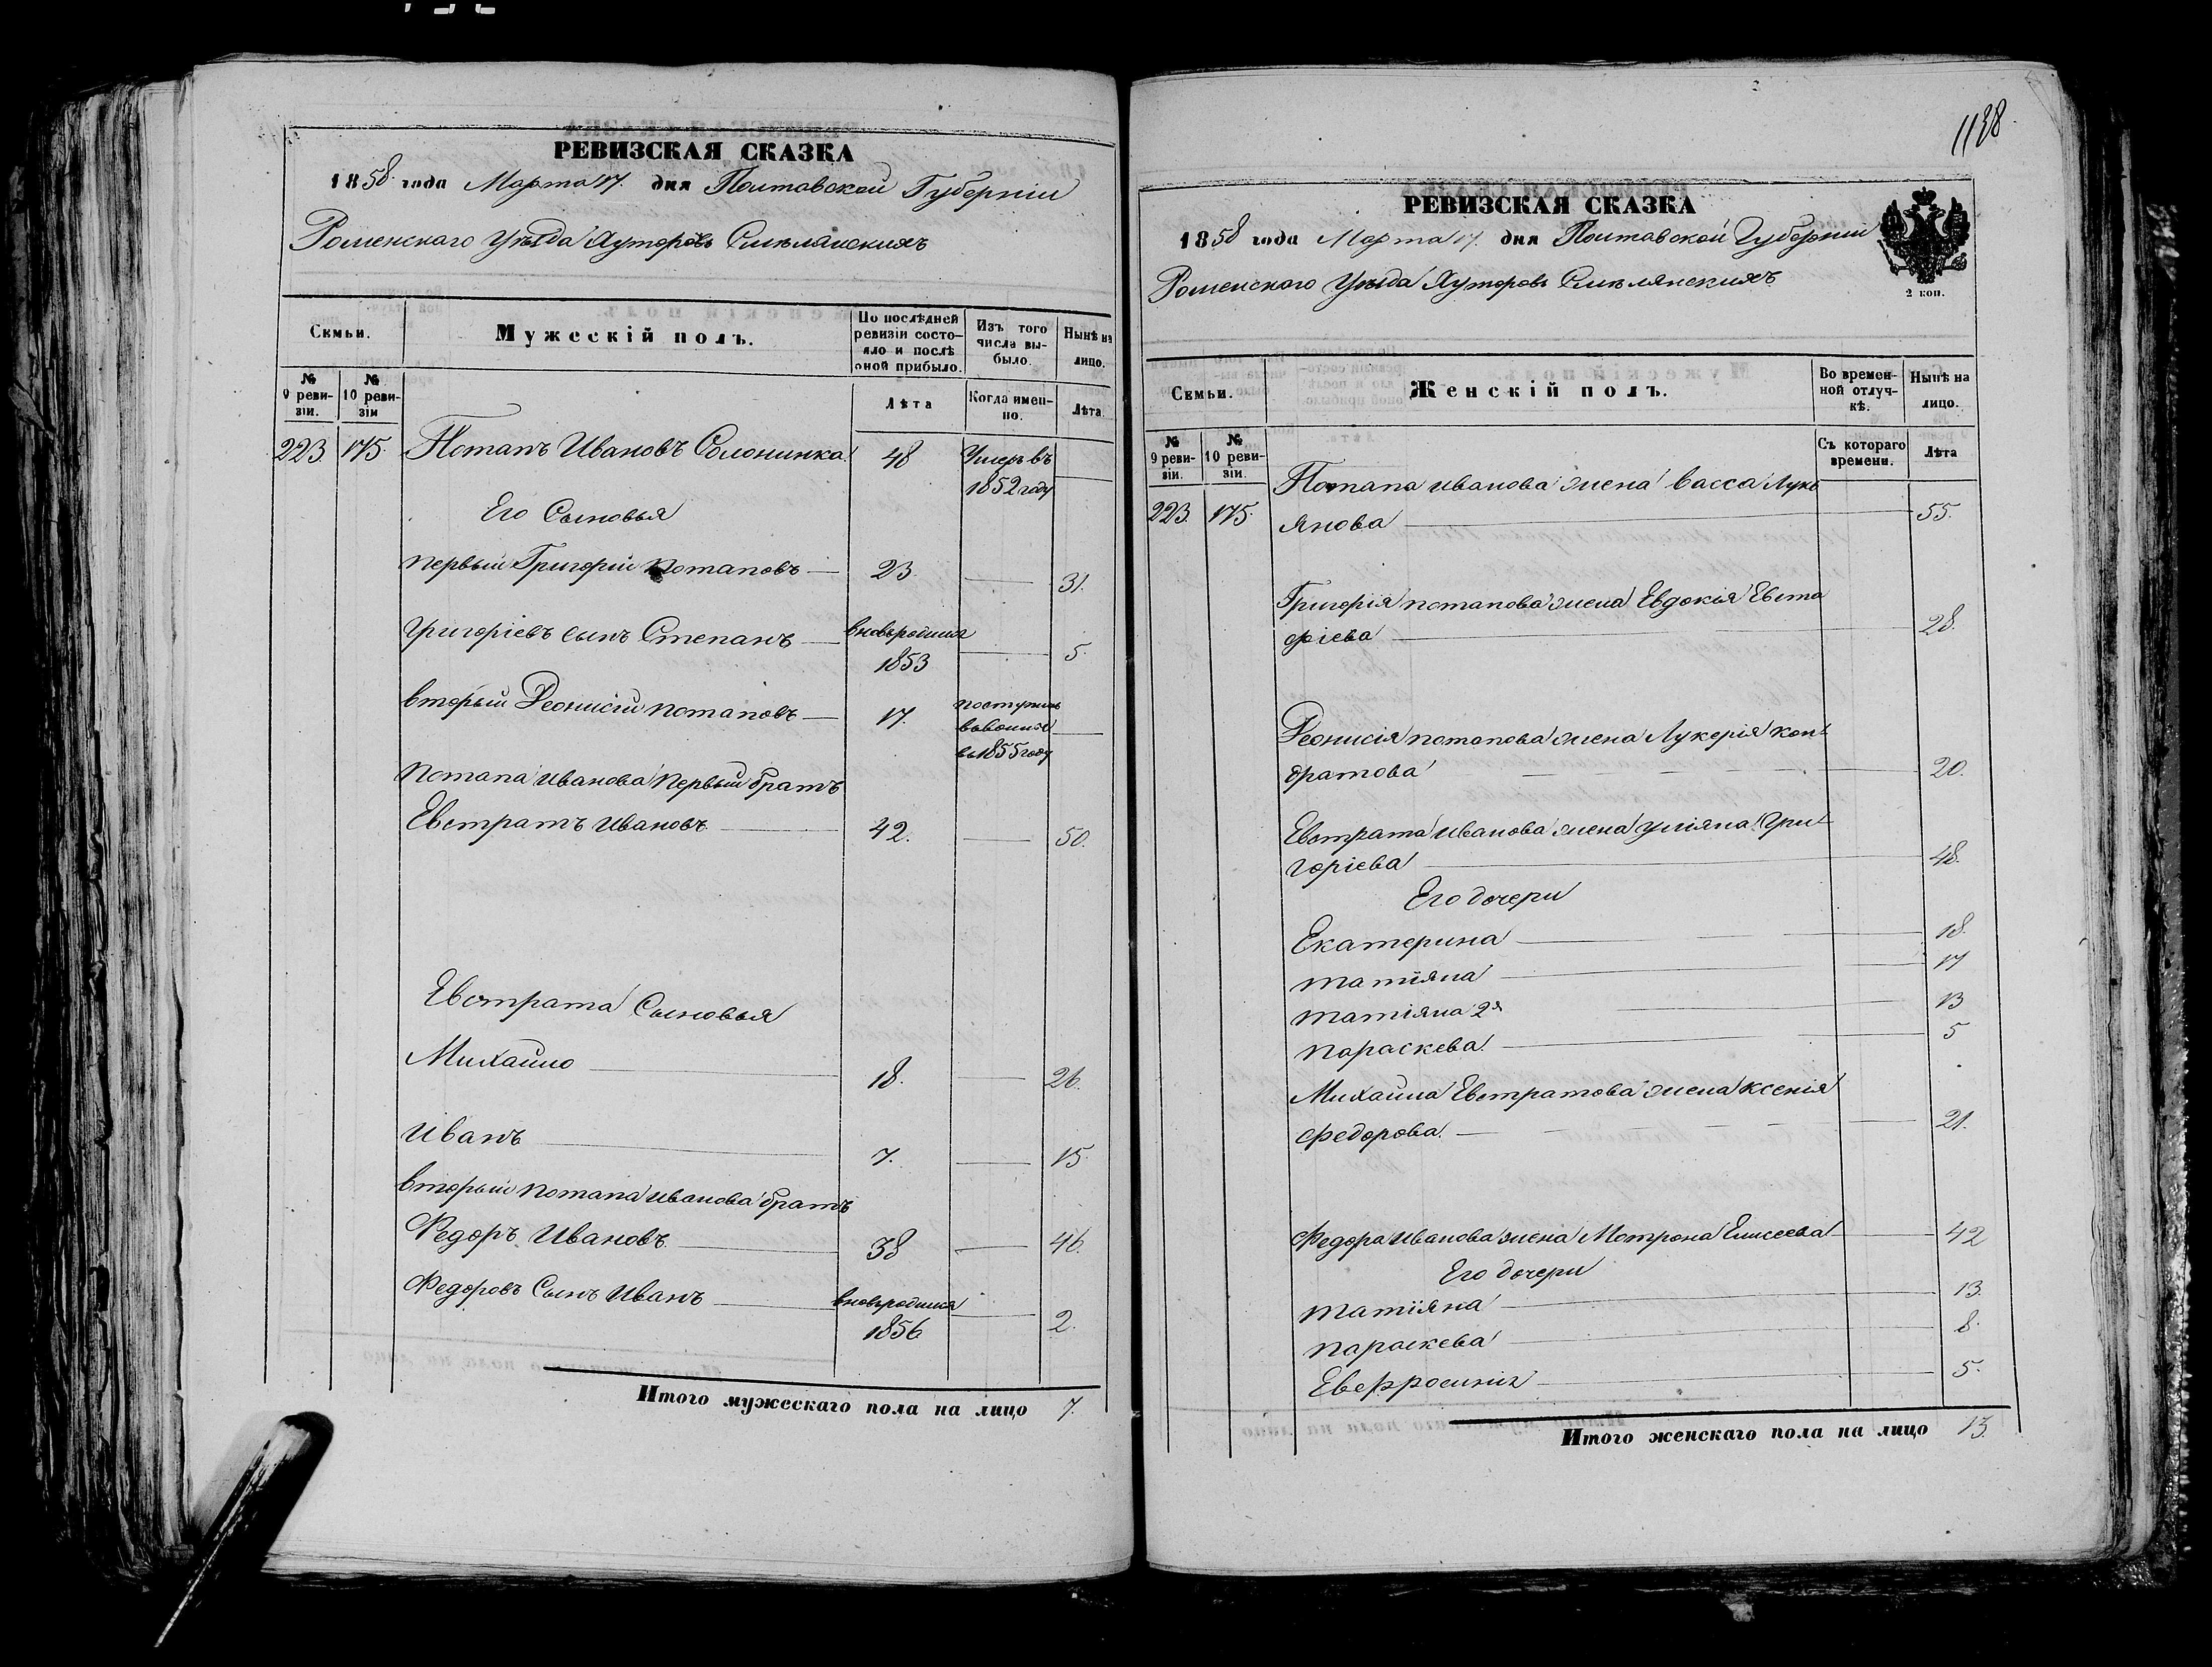 1138.
РЕВИЗСКАЯ СКАЗКА
1858 года Марта 17. дня Полтавской Губерніи
Роменскаго Уѣзда Хуторовъ Смѣлянскихъ
Семьи.
Мужескій полъ.
По послѣдней ревизіи состояло и послѣ оной прибыло.
Изъ того числа выбыло.
Нынѣ на лицо.
№ 9 ревизіи.
№ 10 ревизіи
Лѣта
Когда именно.
Лѣта.
223. 175. Потапъ Ивановъ Солонинка. 48 Умеръ въ
1852 году
Его Сыновья
первый Григорій потаповъ — 23. — 31.
Григоріевъ сынъ Степанъ — вновьродился
1853 — 5.
вторый Деонисій потаповъ — 17. поступилъ
ввоины
въ 1855 году
потапа иванова первый братъ
Евстратъ ивановъ — 42. — 50.
Евстрата Сыновья
Михайло — 18. — 26.
иванъ — 7. — 15.
вторый потапа иванова братъ
Федоръ Ивановъ — 38 — 46.
Федоровъ Сынъ иванъ — вновьродился
1856 — 2.
Итого мужескаго пола на лицо 7.
РЕВИЗСКАЯ СКАЗКА
1858 года Марта 17. дня Полтавской Губерніи
Роменскаго Уѣзда Хуторовъ Смѣлянскихъ
2 коп.
Семьи.
Женскій полъ.
Во временной отлучкѣ.
Нынѣ на лицо.
№ 9 ревизіи.
№ 10 ревизіи.
Съ котораго времени.
Лѣта
Потапа иванова жена васса Лукь
223. 175. янова — 55.
Григорія потапова жена Евдокія Евста
фіева — 28.
Деонисія потапова жена Лукерія кон
дратова — 20.
Евстрата иванова жена уліяна Гри
горіева — 48.
Его дочери
Екатерина — 18.
татіяна — 17
татіяна 2я — 13
параскева — 5
Михайла Евстратова жена ксенія
федорова. — 21.
федора иванова жена Мотрона Елисеева — 42
Его дочери
татіяна — 13.
параскева — 8.
Евфросинія — 5.
Итого женскаго пола на лицо 13.